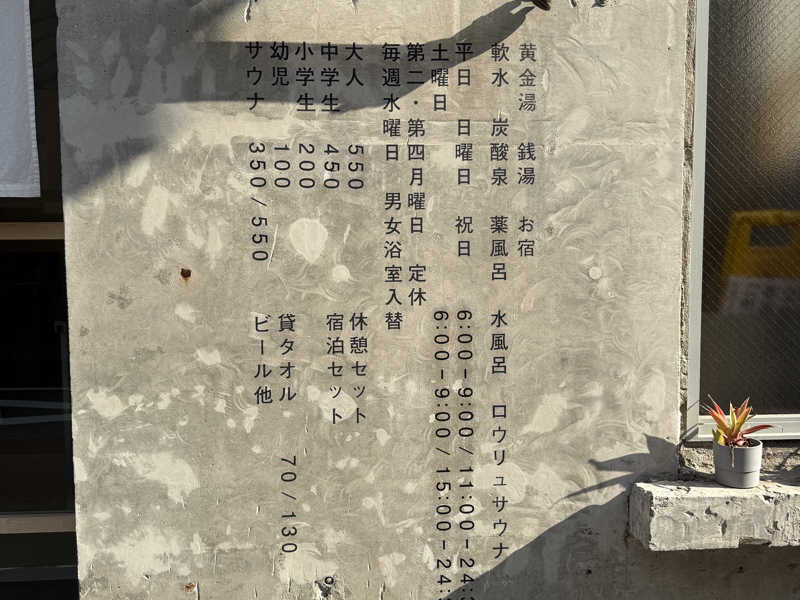 黄金湯 銭湯 お宿
軟水 炭酸泉 薬風呂 水風呂 ロウリュサウナ
平日 日曜日 祝日 6:00-9:00/11:00-24:
土曜日 6:00-9:00/15:00-24:
第二・第四月曜日 定休
毎週水曜日 男女浴室入替
大人 550
中学生 450
小学生 200
幼児 100
サウナ 350/550
休憩セット
宿泊セット
貸タオル 70/130
ビール他